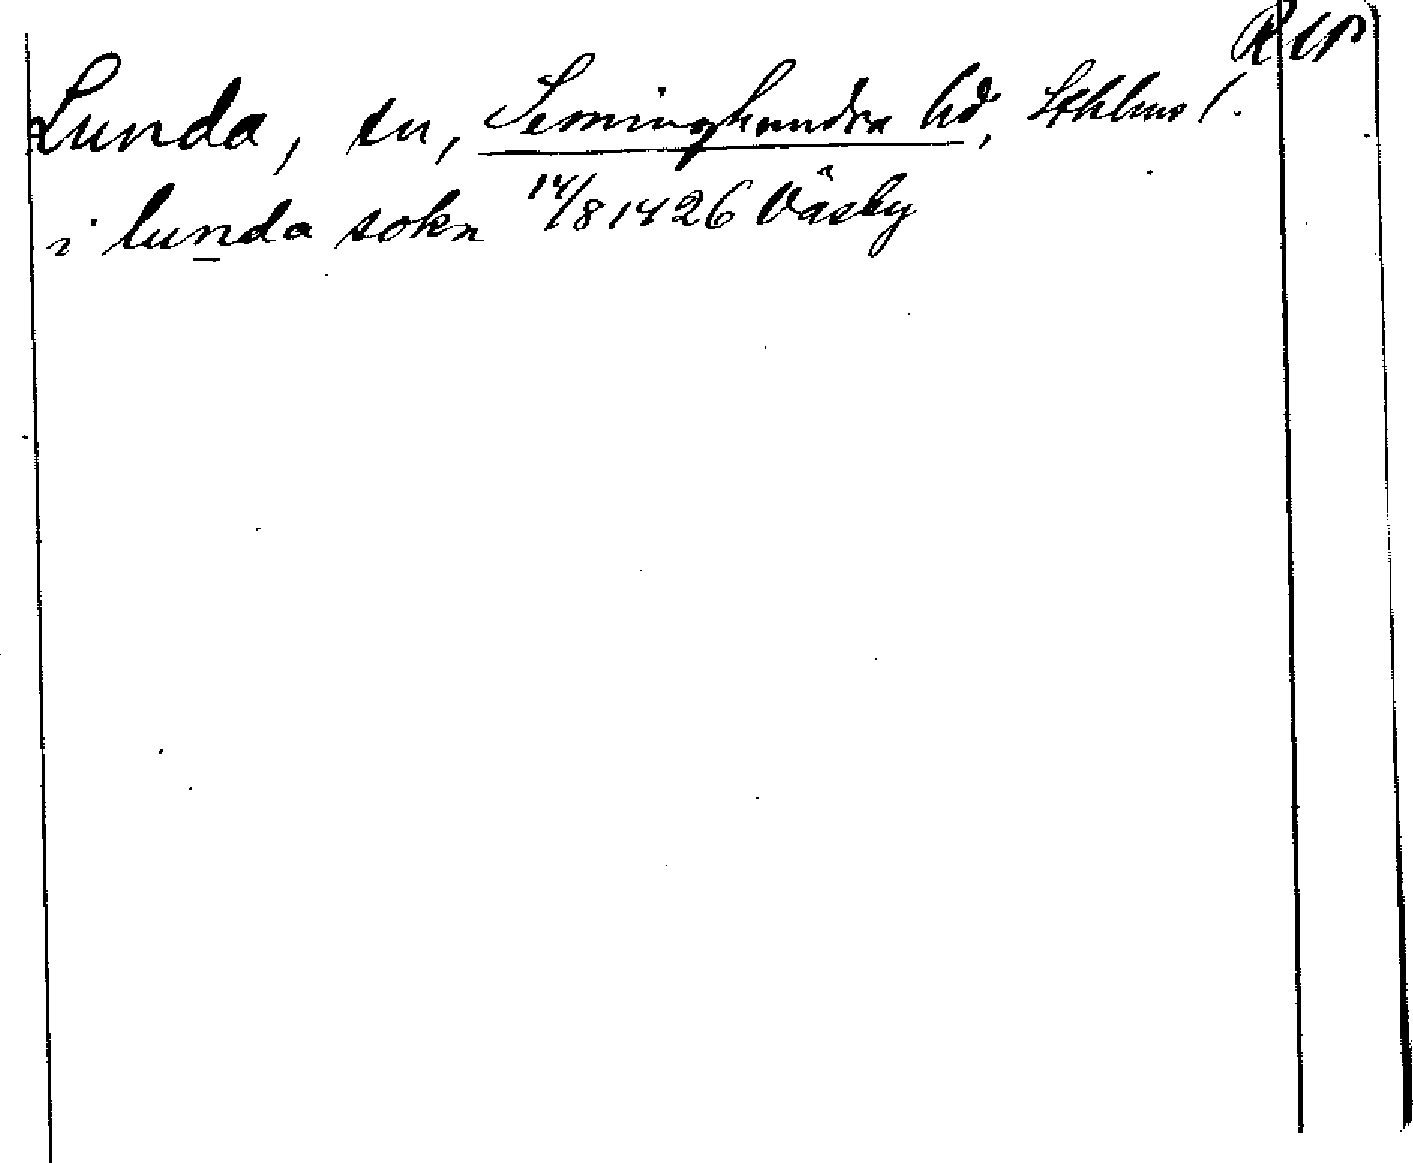 RAP
Lunda, sn, Seminghundra hd, Sthlms l.
i lunda sokn 14/8 1426 Väsby